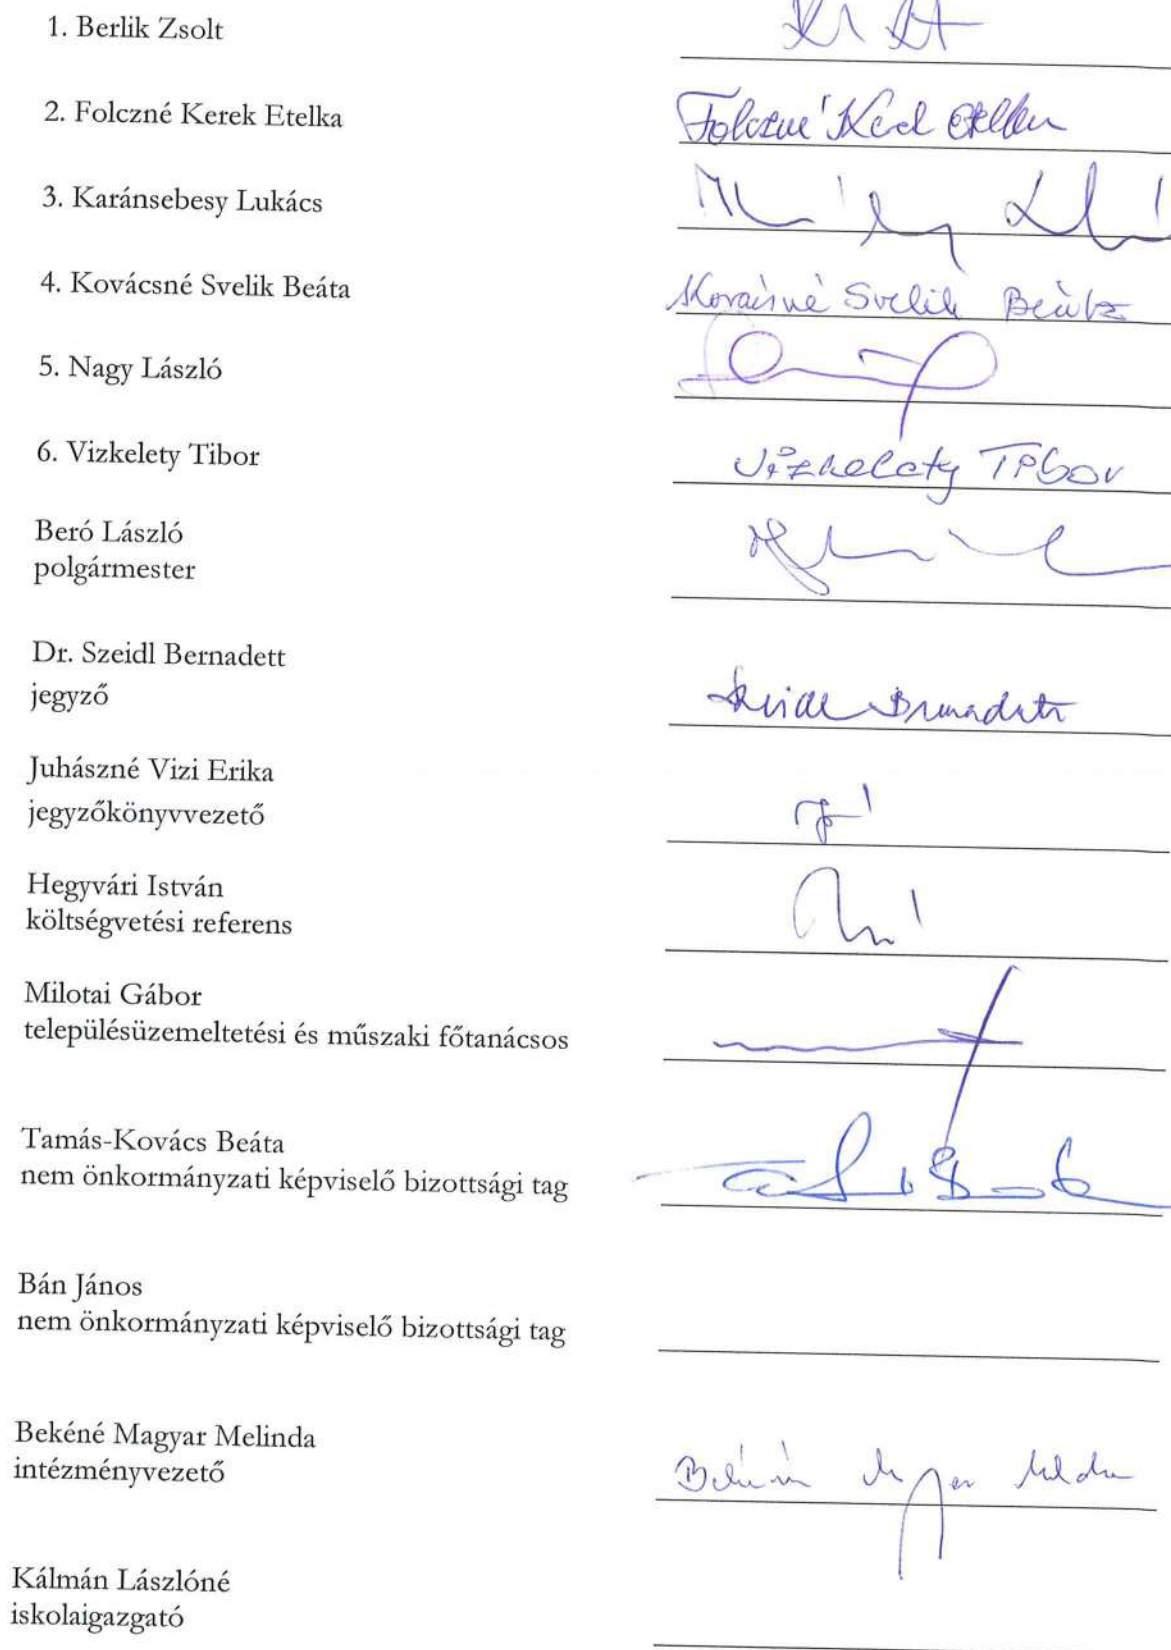 1. Berlik Zsolt
2. Folczné Kerek Etelka
Folczné Etelka
3. Karánsebesy Lukács
4. Kovácsné Svelik Beáta
Kovácsné Svelik Beáta
5. Nagy László
6. Vizkelety Tibor
Vizkelety Tibor
Beró László
polgármester
Dr. Szeidl Bernadett
jegyző
Szeidl Bernadett
Juhászné Vizi Erika
jegyzőkönyvvezető
Hegyvári István
költségvetési referens
Milotai Gábor
településüzemeltetési és műszaki főtanácsos
Tamás-Kovács Beáta
nem önkormányzati képviselő bizottsági tag
Bán János
nem önkormányzati képviselő bizottsági tag
Bekéné Magyar Melinda
intézményvezető
Kálmán Lászlóné
iskolaigazgató